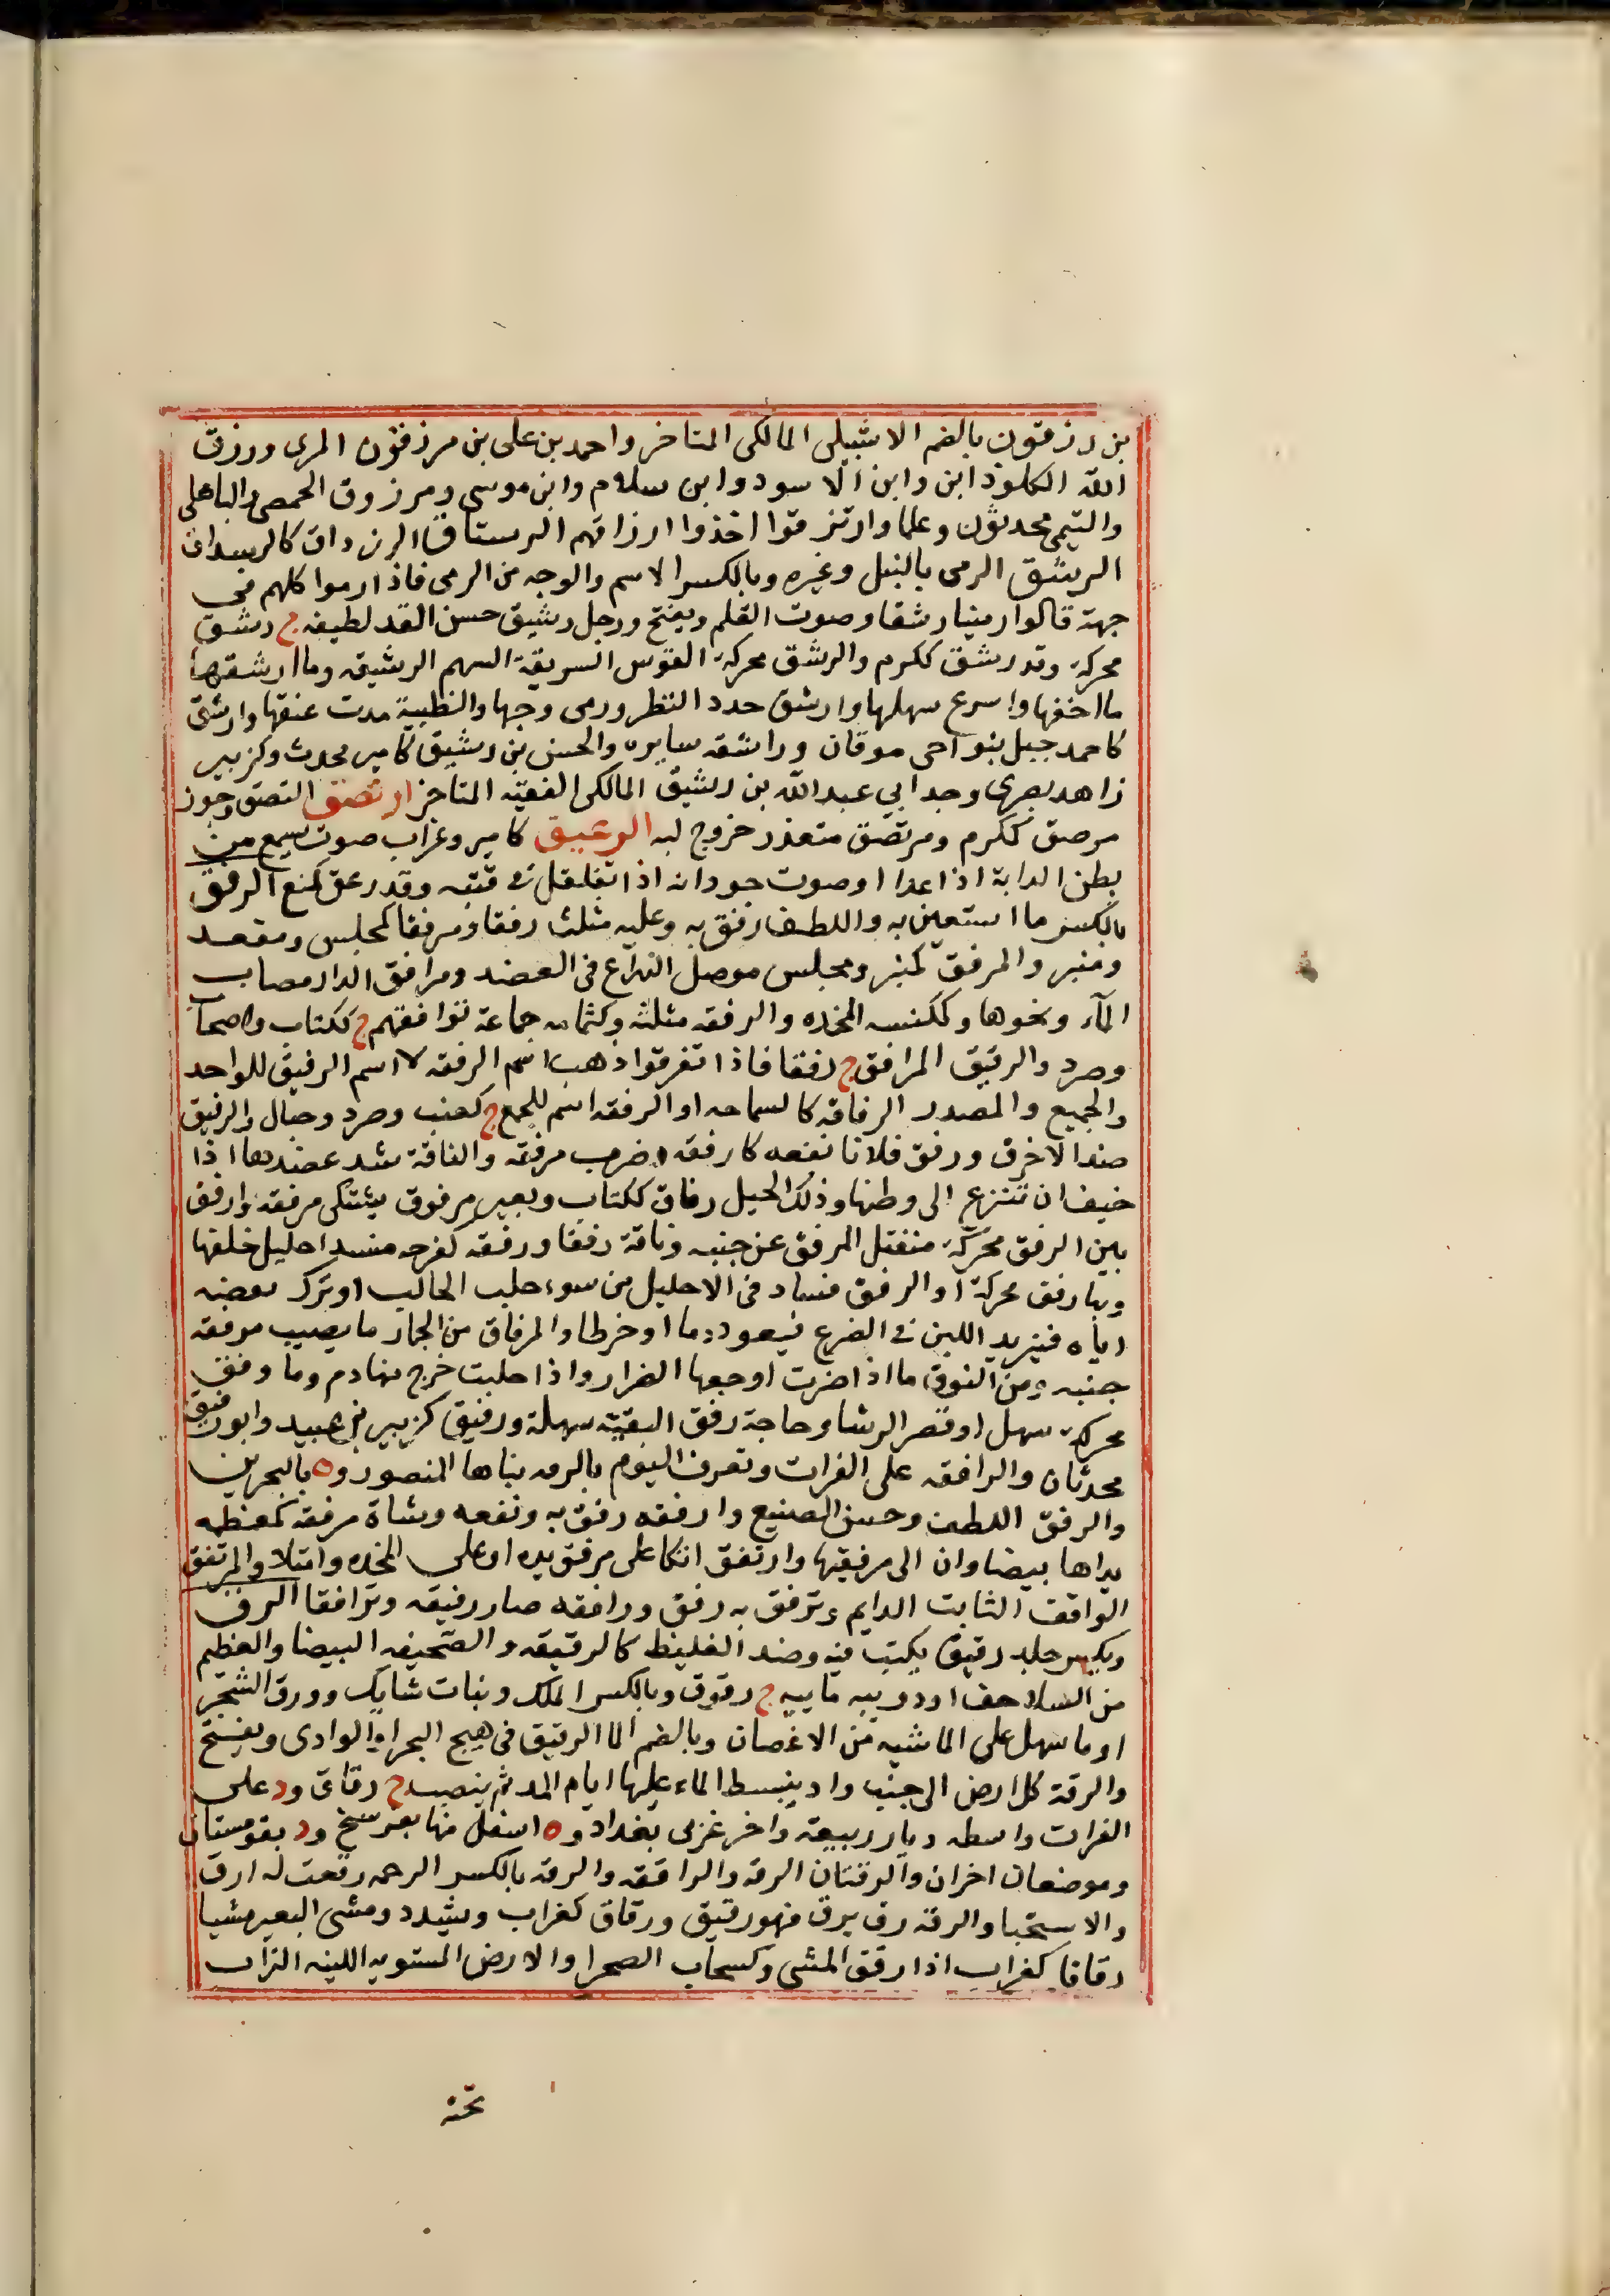 بن رزقون بالضم الاشبيلى المالكى المتاخر واحمد بن على بن مرزقون المرى ورزق
الله الكلوذانى وابن الاسود وابن سلام وابن موسى ومرزوق الحمصى والباهلى
والتيمى محدثون وعلما وارتزقوا اخذوا ارزاقهم الرستاق الرزداق كالرسداق
الرشق الرمى بالنبل وغيره وبالكسر الاسم والوجه من الرمى فاذا رموا كلهم فى
جهة قالوا رمينا رشقا وصوت القلم ويفتح ورجل رشيق حسن القد لطيفه ج رشق
محركة وقد رشق ككرم والرشق محركة القوس السريعة السهم الرشيقه وما ارشقها
ما اخفها واسرع سهمها وارشق حدد النظر ورمى وجها والظبية مدت عنقها وارشق
كاحمد جبل بنواحى موقان وراشقه سايره والحسن بن رشيق كامير محدث وكزبير
زاهد بصرى وجد ابي عبد الله بن رشيق المالكى الفقيه المتاخر ارتصق التصق وجوز
مرصق ككرم ومرتصق متعذر خروج لبه الرعيق كامير وغراب صوت يسمع من
بطن الدابة اذا عدا او صوت جردانه اذا تقلقل فى قنبه وقد رعق كمنع الرفق
بالكسر ما استعين به واللطف رفق به وعليه مثلث رفقا ومرفقا كمجلس ومقعد
ومنبر والمرفق كمنبر ومجلس موصل الذراع فى العضد ومرافق الدار مصاب
المآء ونحوها وكمكنسه المخده والرفقه مثلثه وكثمامه جماعة توافقهم ج ككتاب واصحاب
وصرد والرفيق المرافق ج رفقا فاذا تفرقوا ذهب اسم الرفقه لا اسم الرفيق للواحد
والجميع والمصدر الرفاقه كالسماحه او الرفقه اسم للجمع ج كعنب وصرد وحبال والرفيق
ضد الاخرق ورفق فلانا نفعه كارفقه وضرب مرفقه والناقة شد عضدها اذا
خيف ان تنزع الى وطنها وذلك الحبل رفاق ككتاب وبعير مرفوق يشتكى مرفقه وارفق
بين الرفق محركة منفتل المرفق عن جنبه وناقة رفقا ورفقه كفرحه منسد احليل خلفها
وبها رفق محركة او الرفق فساد فى الاحليل من سوء حلب الحالب او ترك نفضه
اياه فيزيد اللبن فى الضرع فيعود دما او خرطا والمرفاق من الجمال ما يصيب مرفقه
جنبه ومن النوق ما اذا ضرت اوجعها الضرار واذا حلبت خرج منها دم وما رفق
محركة سهل او قصر الرشا وحاجة رفق البقية سهلة ورفيق كزبير بن عبيد وابو رفيق
محدثان والرافقه على الفرات وتعرف اليوم بالرقه بناها المنصور وه بالبحرين
والرفق اللطف وحسن الصنيع وارفقه رفق به ونفعه وشاة مرفقة كمعظمه
يداها بيضاوان الى مرفقيها وارتفق اتكا على مرفق يده او على المخده وامتلا والمرتفق
الواقف الثابت الدايم وترفق به رفق ورافقه صار رفيقه وترافقا الرق
ويكسر جلد رقيق يكتب فيه وضد الغليظ كالرقيقه والصحيفه البيضا والعظيم
من السلاحف او دويبه ماييه ج رقوق وبالكسر الملك ونبات شايك وورق الشجر
او ما سهل على الماشيه من الاغصان وبالضم الما الرقيق فى هيج البحر او الوادى ويفتح
والرقة كل ارض الى جنب واد ينبسط الماء عليها ايام المد ثم ينضب ج رقاق ود على
الفرات واسطه ديار ربيعة واخر غربى بغداد وه اسفل منها بفرسخ ود بقوهستان
وموضعان اخران والرقتان الرقه والرافقه والرقه بالكسر الرحمه رقعت له ارق
والاستحيا والرقة رق يرق فهو رقيق ورقاق كغراب ويشدد ومشى البعير مشيا
رقاقا كغراب اذا رقق المشى وكسحاب الصحرا والارض المستويه اللينه التراب
تحته